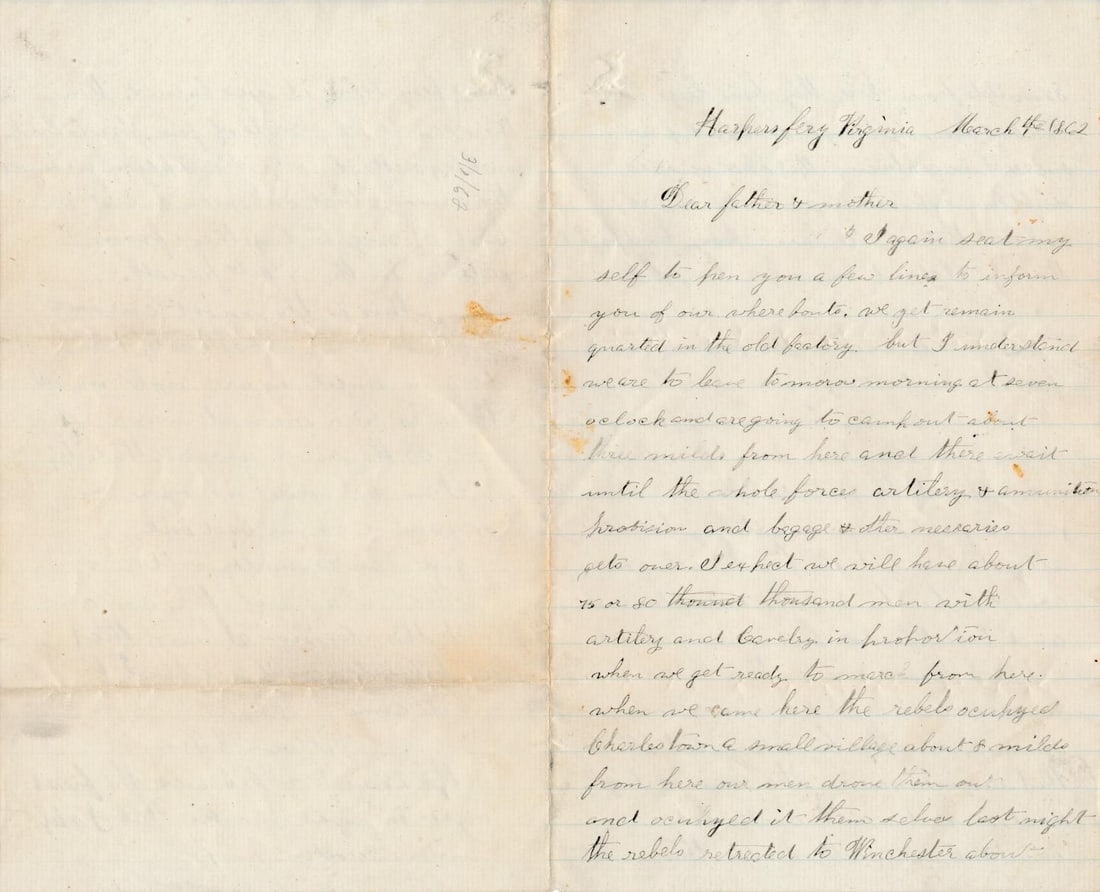 3/4/62
Harpersfery Virginia March 4th 1862
Dear father & mother
I again seat my
self to pen you a few lines to inform
you of our where bouts. we yet remain
quarted in the old factory. but I understand
we are to leave tomorow morning at seven
oclock and are going to camp out about
three milds from here and there await
until the whole forces artilery & amunition
provision and bagage & other necearies
gets over. I expect we will have about
75 or 80 thousand men with
artilery and Cavalry in proportion
when we get ready to march from here.
when we came here the rebels ocuhyed
Charlestown a small village about 8 milds
from here our men drove them out
and ocuhyed it them selves last night
the rebels retreated to Winchester about